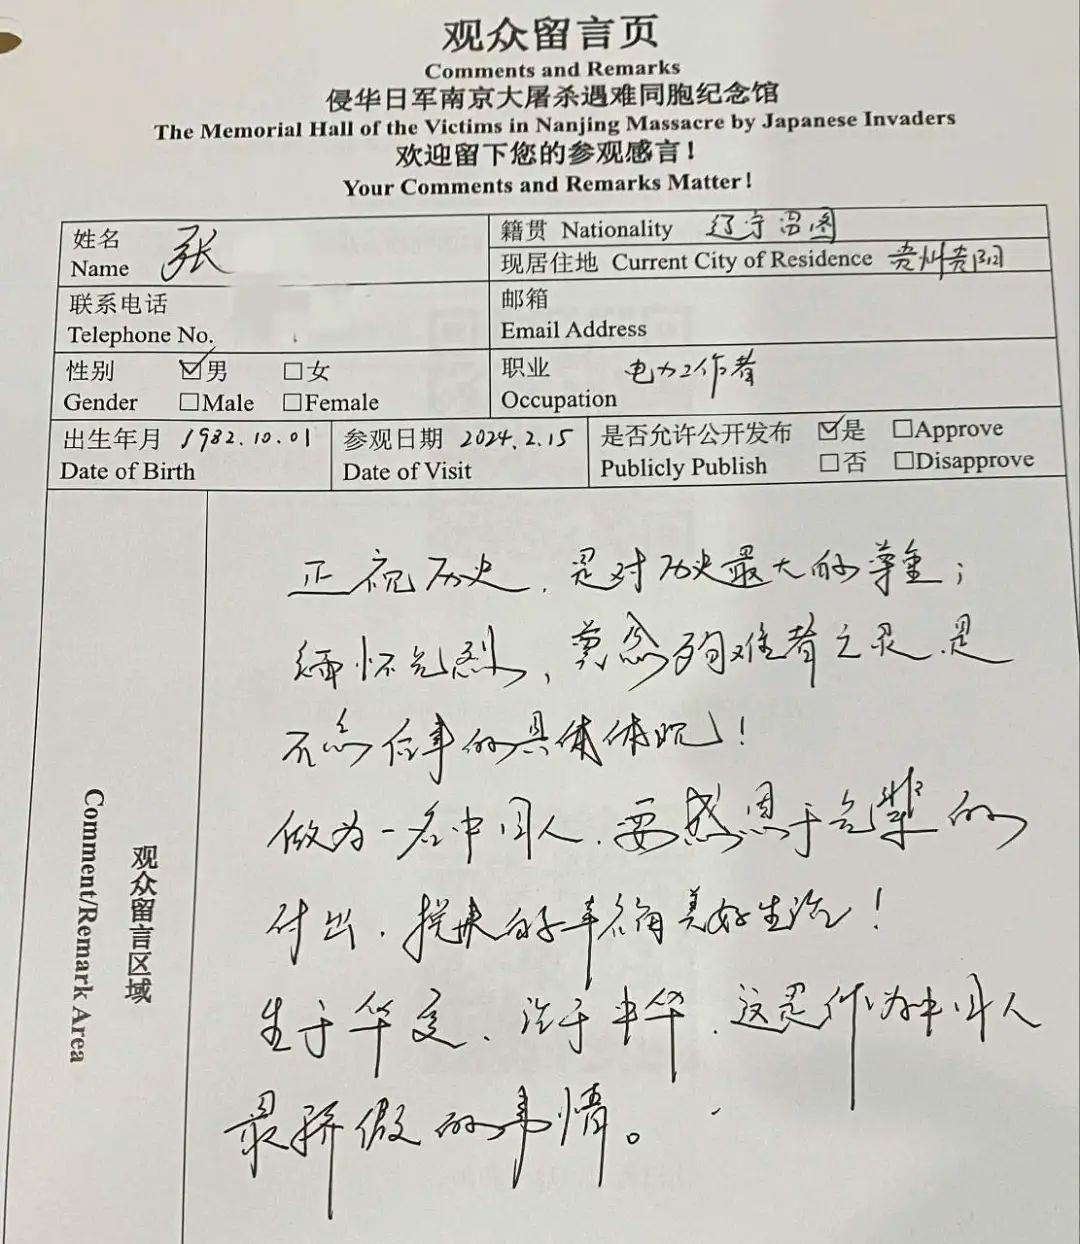 观众留言页
Comments and Remarks
侵华日军南京大屠杀遇难同胞纪念馆
The Memorial Hall of the Victims in Nanjing Massacre by Japanese Invaders
欢迎留下您的参观感言！
Your Comments and Remarks Matter!
姓名 Name 张
籍贯 Nationality 辽宁昌图
现居住地 Current City of Residence 贵州贵阳
联系电话
Telephone No.
邮箱
Email Address
性别 ☑男 □女
Gender □Male □Female
职业 电力工作者
Occupation
出生年月 1982.10.01
Date of Birth
参观日期 2024.2.15
Date of Visit
是否允许公开发布 ☑是 □Approve
Publicly Publish □否 □Disapprove
观众留言区域
Comment/Remark Area
正视历史，是对历史最大的尊重；
缅怀先烈，奠念殉难者之灵，是
不忘往事的具体体现！
做为一名中国人，要感恩于先辈的
付出，换来的幸福美好生活！
生于华夏、活于中华，这是作为中国人
最骄傲的事情。